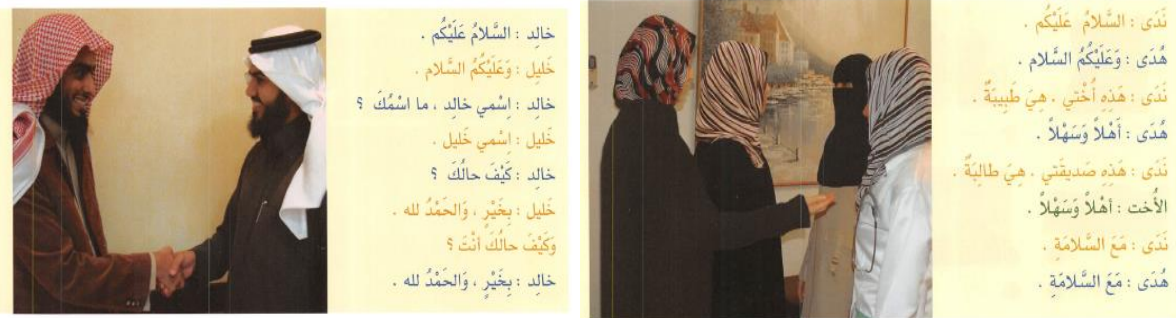 خالِد : السَّلامُ عَلَيْكُم .
خَليل : وَعَلَيْكُمُ السَّلام .
خالِد : اِسْمي خالِد ، ما اسْمُكَ ؟
خَليل : اِسْمي خَليل .
خالِد : كَيْفَ حالُكَ ؟
خَليل : بِخَيْرٍ ، وَالحَمْدُ لله .
وَكَيْفَ حالُكَ أنْتَ ؟
خالِد : بِخَيْرٍ ، وَالحَمْدُ لله .
نَدَى : السَّلامُ عَلَيْكُم .
هُدَى : وَعَلَيْكُمُ السَّلام .
نَدَى : هَذِه أُخْتي ، هِيَ طَبيبَةٌ .
هُدَى : أهْلاً وَسَهْلاً .
نَدَى : هَذِه صَديقَتي ، هِيَ طالِبَةٌ .
الأُخت : أهْلاً وَسَهْلاً .
نَدَى : مَعَ السَّلامَةِ .
هُدَى : مَعَ السَّلامَةِ .